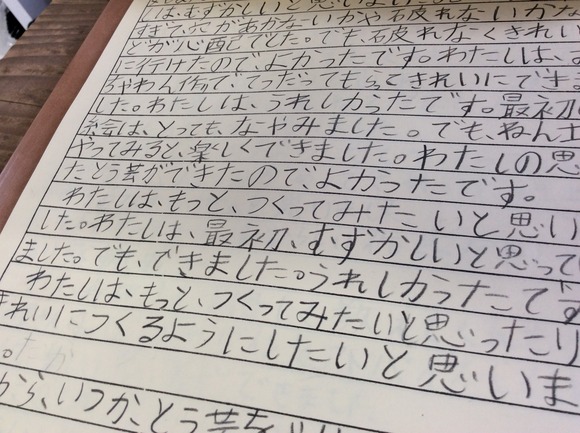 しは、むずかしいと思いました。
すぎて、穴があかないかや破れないかな
どが心配でした。でも破れなくきれい
に行けたのでよかったです。わたしは、よ
ちゃわん作りで、てつだってもらってきれいにできま
した。わたしは、うれしかったです。最初
絵は、とっても、なやみました。でも、ねん土
やってみると、楽しくできました。わたしの思
たとう芸ができたので、よかったです。
わたしは、もっと、つくってみたいと思い
した。わたしは、最初、むずかしいと思ってい
ました。でも、できました。うれしかったです
わたしは、もっと、つくってみたいと思ったり
きれいにつくるようにしたいと思いま
。
から、いつか、とう芸を